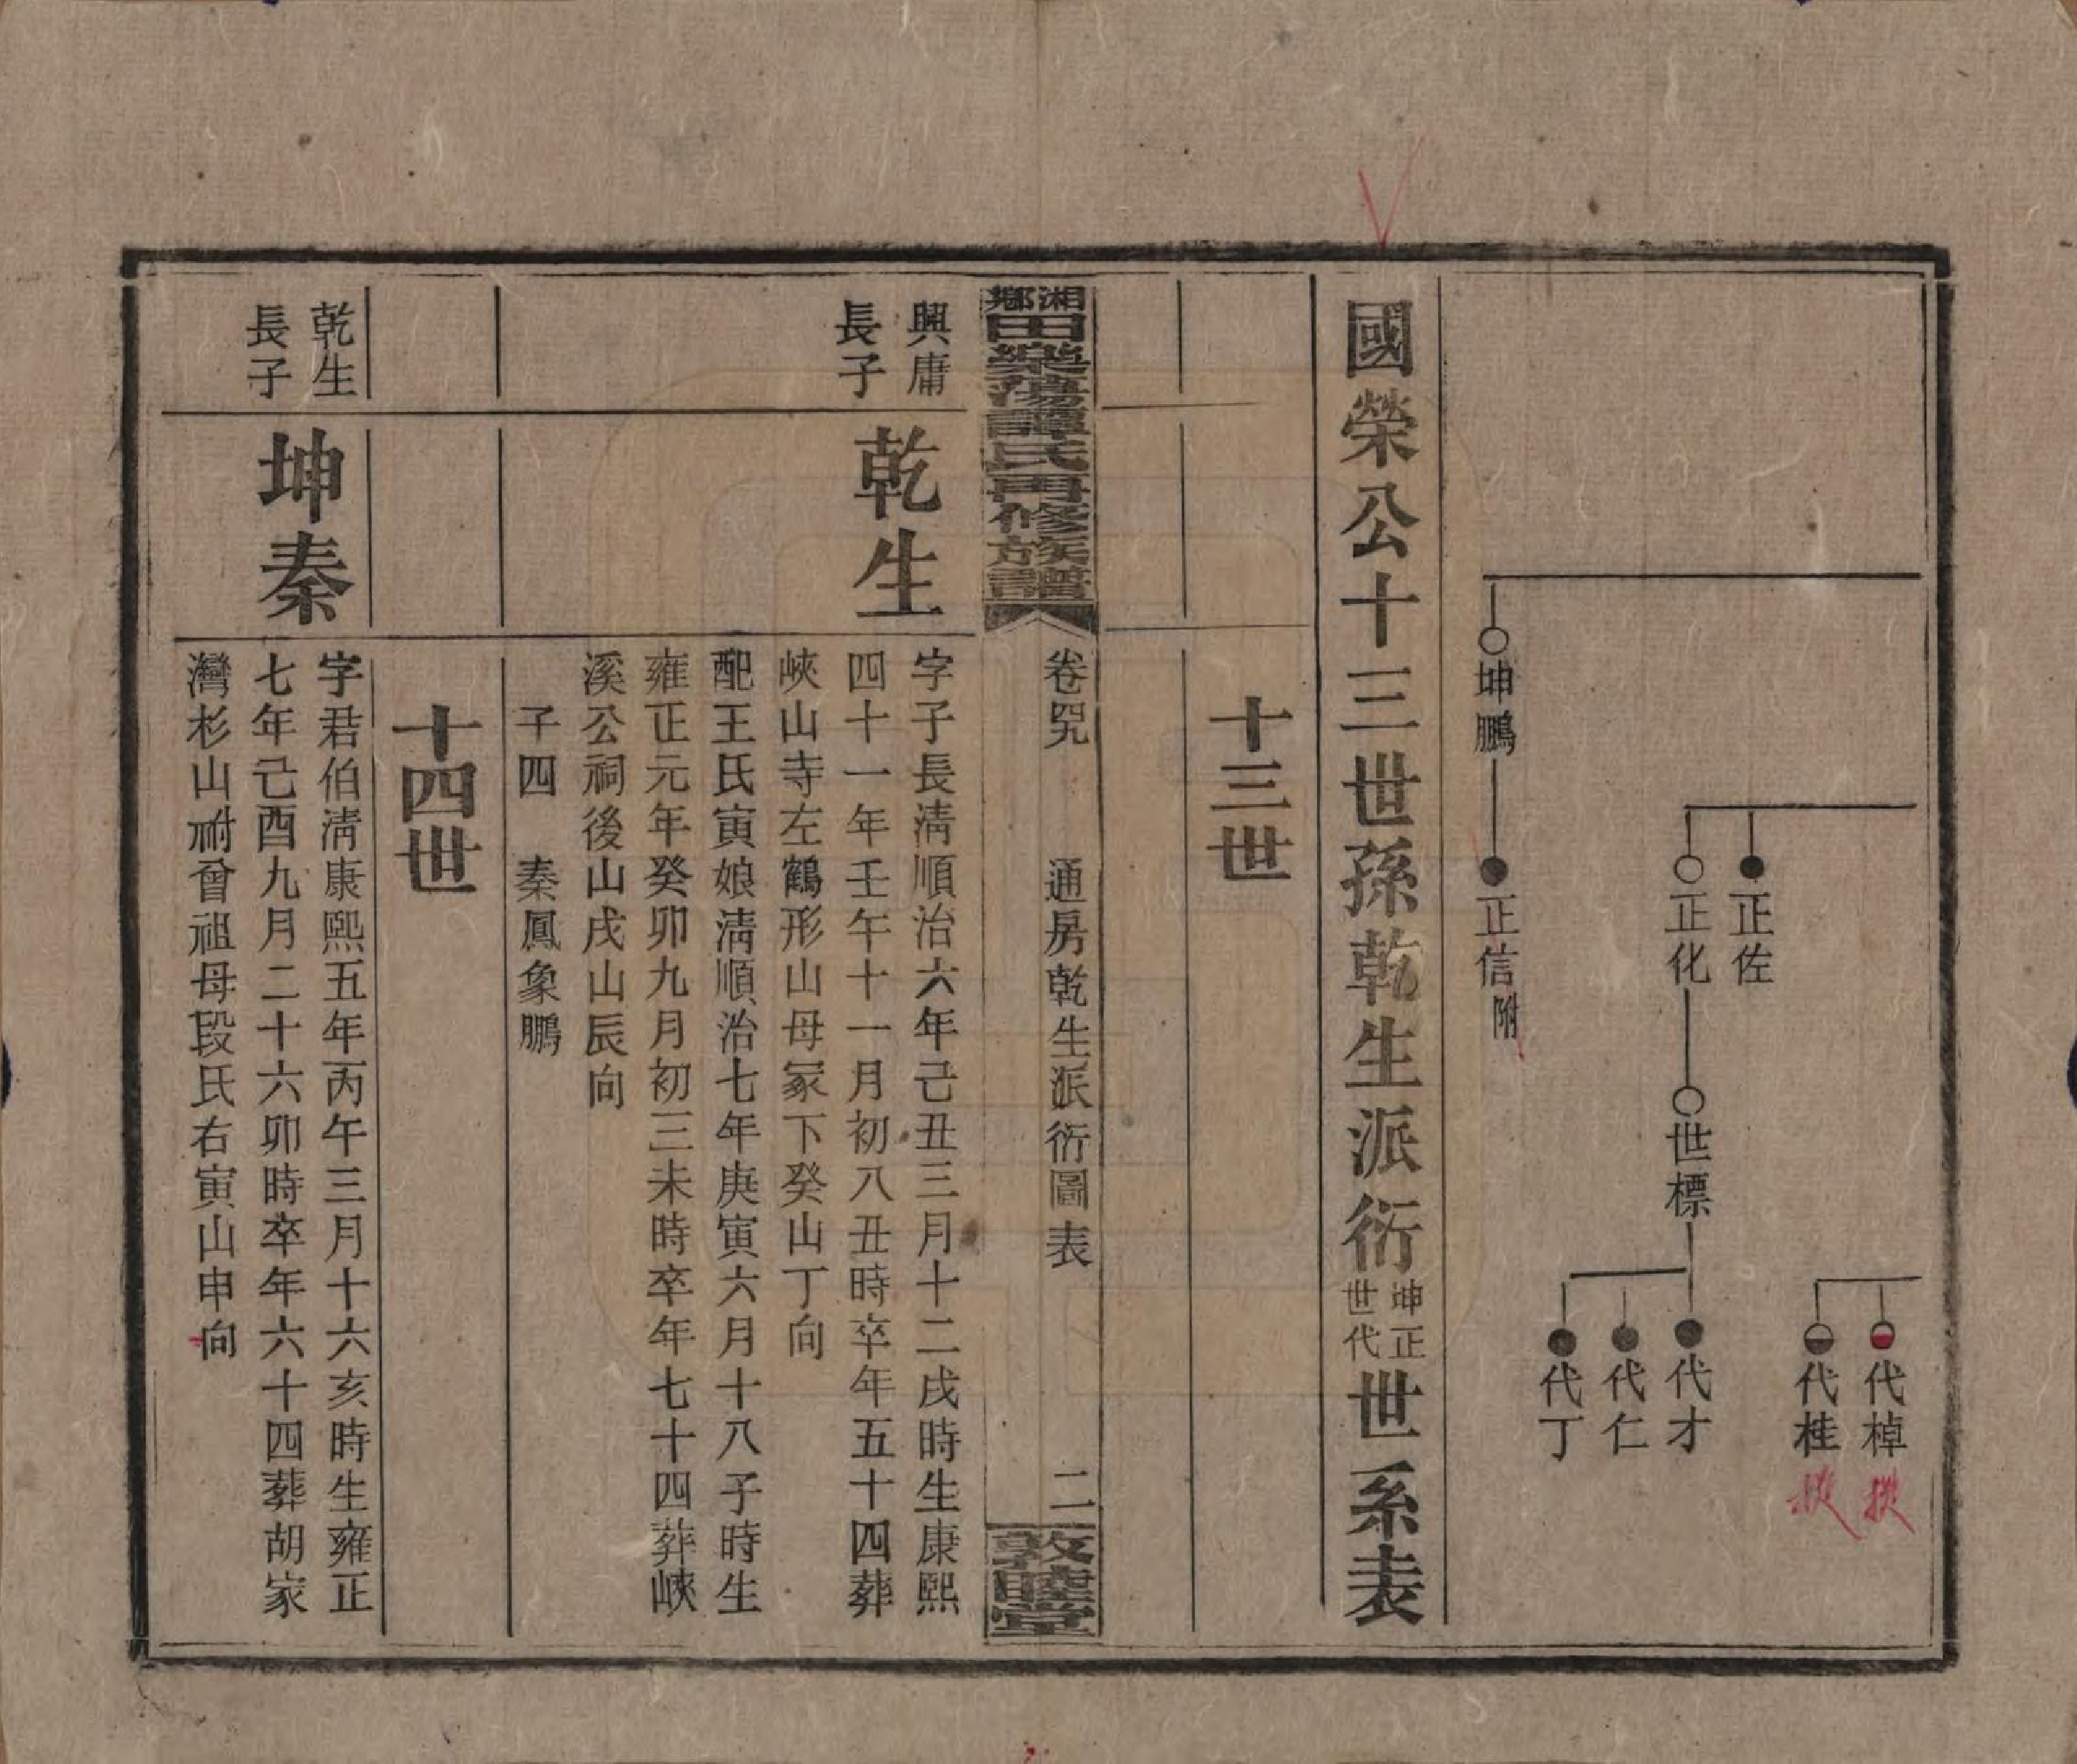 坤鵬
正信附
正佐
正化
世標
代棹
代桂
代才
代仁
代丁
國榮公十三世孫乾生派衍坤正世代世系表
十三世
湘鄉田樂蕩譚氏再修族譜
卷四九
通房乾生派衍圖表
二
敦睦堂
興庸
長子
乾生
字子長淸順治六年己丑三月十二戌時生康熙
四十一年壬午十一月初八丑時卒年五十四葬
峽山寺左鶴形山母冢下癸山丁向
配王氏寅娘淸順治七年庚寅六月十八子時生
雍正元年癸卯九月初三未時卒年七十四葬峽
溪公祠後山戌山辰向
子四　秦鳳象鵬
十四世
乾生
長子
坤秦
字君伯淸康熙五年丙午三月十六亥時生雍正
七年己酉九月二十六卯時卒年六十四葬胡家
灣杉山祔曾祖母段氏右寅山申向